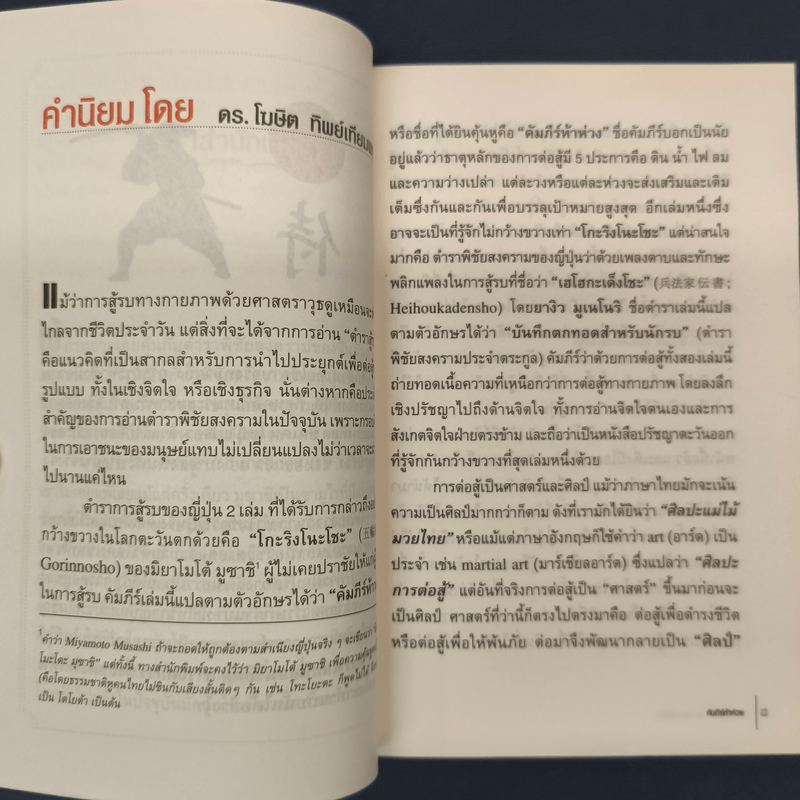 คำนิยม โดย ดร. โฆษิต ทิพย์เทียม
侍
แม้ว่าการสู้รบทางกายภาพด้วยศาสตราวุธดูเหมือนจะ
ไกลจากชีวิตประจำวัน แต่สิ่งที่จะได้จากการอ่าน “ตำราสู้
คือแนวคิดที่เป็นสากลสำหรับการนำไปประยุกต์เพื่อต่อสู้
รูปแบบ ทั้งในเชิงจิตใจ หรือเชิงธุรกิจ นั่นต่างหากคือประ
สำคัญของการอ่านตำราพิชัยสงครามในปัจจุบัน เพราะกรอบ
ในการเอาชนะของมนุษย์แทบไม่เปลี่ยนแปลงไม่ว่าเวลาจะ
ไปนานแค่ไหน
ตำราการสู้รบของญี่ปุ่น 2 เล่ม ที่ได้รับการกล่าวถึง
กว้างขวางในโลกตะวันตกด้วยคือ “โกะริงโนะโชะ” (五
Gorinnosho) ของมิยาโมโต้ มูซาชิ¹ ผู้ไม่เคยปราชัยให้แก่
ในการสู้รบ คัมภีร์เล่มนี้แปลตามตัวอักษรได้ว่า “คัมภีร์ห้า
¹คำว่า Miyamoto Musashi ถ้าจะถอดให้ถูกต้องตามสำเนียงญี่ปุ่นจริง ๆ จะเขียนว่า
โมะโตะ มูซาชิ” แต่ทั้งนี้ ทางสำนักพิมพ์จะคงไว้ว่า มิยาโมโต้ มูซาชิ เพื่อความ
(คือโดยธรรมชาติหูคนไทยไม่ชินกับเสียงสั้นติดๆ กัน เช่น โทะโยะตะ ก็พูดไม่ได้
เป็น โตโยต้า เป็นต้น
หรือชื่อที่ได้ยินคุ้นหูคือ “คัมภีร์ห้าห่วง” ชื่อคัมภีร์บอกเป็นนัย
อยู่แล้วว่าธาตุหลักของการต่อสู้มี 5 ประการคือ ดิน น้ำ ไฟ ลม
และความว่างเปล่า แต่ละวงหรือแต่ละห่วงจะส่งเสริมและเติม
เต็มซึ่งกันและกันเพื่อบรรลุเป้าหมายสูงสุด อีกเล่มหนึ่งซึ่ง
อาจจะเป็นที่รู้จักไม่กว้างขวางเท่า “โกะริงโนะโชะ” แต่น่าสนใจ
มากคือ ตำราพิชัยสงครามของญี่ปุ่นว่าด้วยเพลงดาบและทักษะ
พลิกแพลงในการสู้รบที่ชื่อว่า “เฮโฮกะเด็งโชะ” (兵法家伝書;
Heihoukadensho) โดยยางิว มูเนโนริ ชื่อตำราเล่มนี้แปล
ตามตัวอักษรได้ว่า “บันทึกตกทอดสำหรับนักรบ” (ตำรา
พิชัยสงครามประจำตระกูล) คัมภีร์ว่าด้วยการต่อสู้ทั้งสองเล่มนี้
ถ่ายทอดเนื้อความที่เหนือกว่าการต่อสู้ทางกายภาพ โดยลงลึก
เชิงปรัชญาไปถึงด้านจิตใจ ทั้งการอ่านจิตใจตนเองและการ
สังเกตจิตใจฝ่ายตรงข้าม และถือว่าเป็นหนังสือปรัชญาตะวันออก
ที่รู้จักกันกว้างขวางที่สุดเล่มหนึ่งด้วย
การต่อสู้เป็นศาสตร์และศิลป์ แม้ว่าภาษาไทยมักจะเน้น
ความเป็นศิลป์มากกว่าก็ตาม ดังที่เรามักได้ยินว่า “ศิลปะแม่ไม้
มวยไทย” หรือแม้แต่ภาษาอังกฤษก็ใช้คำว่า art (อาร์ต) เป็น
ประจำ เช่น martial art (มาร์เชียลอาร์ต) ซึ่งแปลว่า “ศิลปะ
การต่อสู้” แต่อันที่จริงการต่อสู้เป็น “ศาสตร์” ขึ้นมาก่อนจะ
เป็นศิลป์ ศาสตร์ที่ว่านี้ก็ตรงไปตรงมาคือ ต่อสู้เพื่อดำรงชีวิต
หรือต่อสู้เพื่อให้พ้นภัย ต่อมาจึงพัฒนากลายเป็น “ศิลป์”
คัมภีร์ห้าห่วง